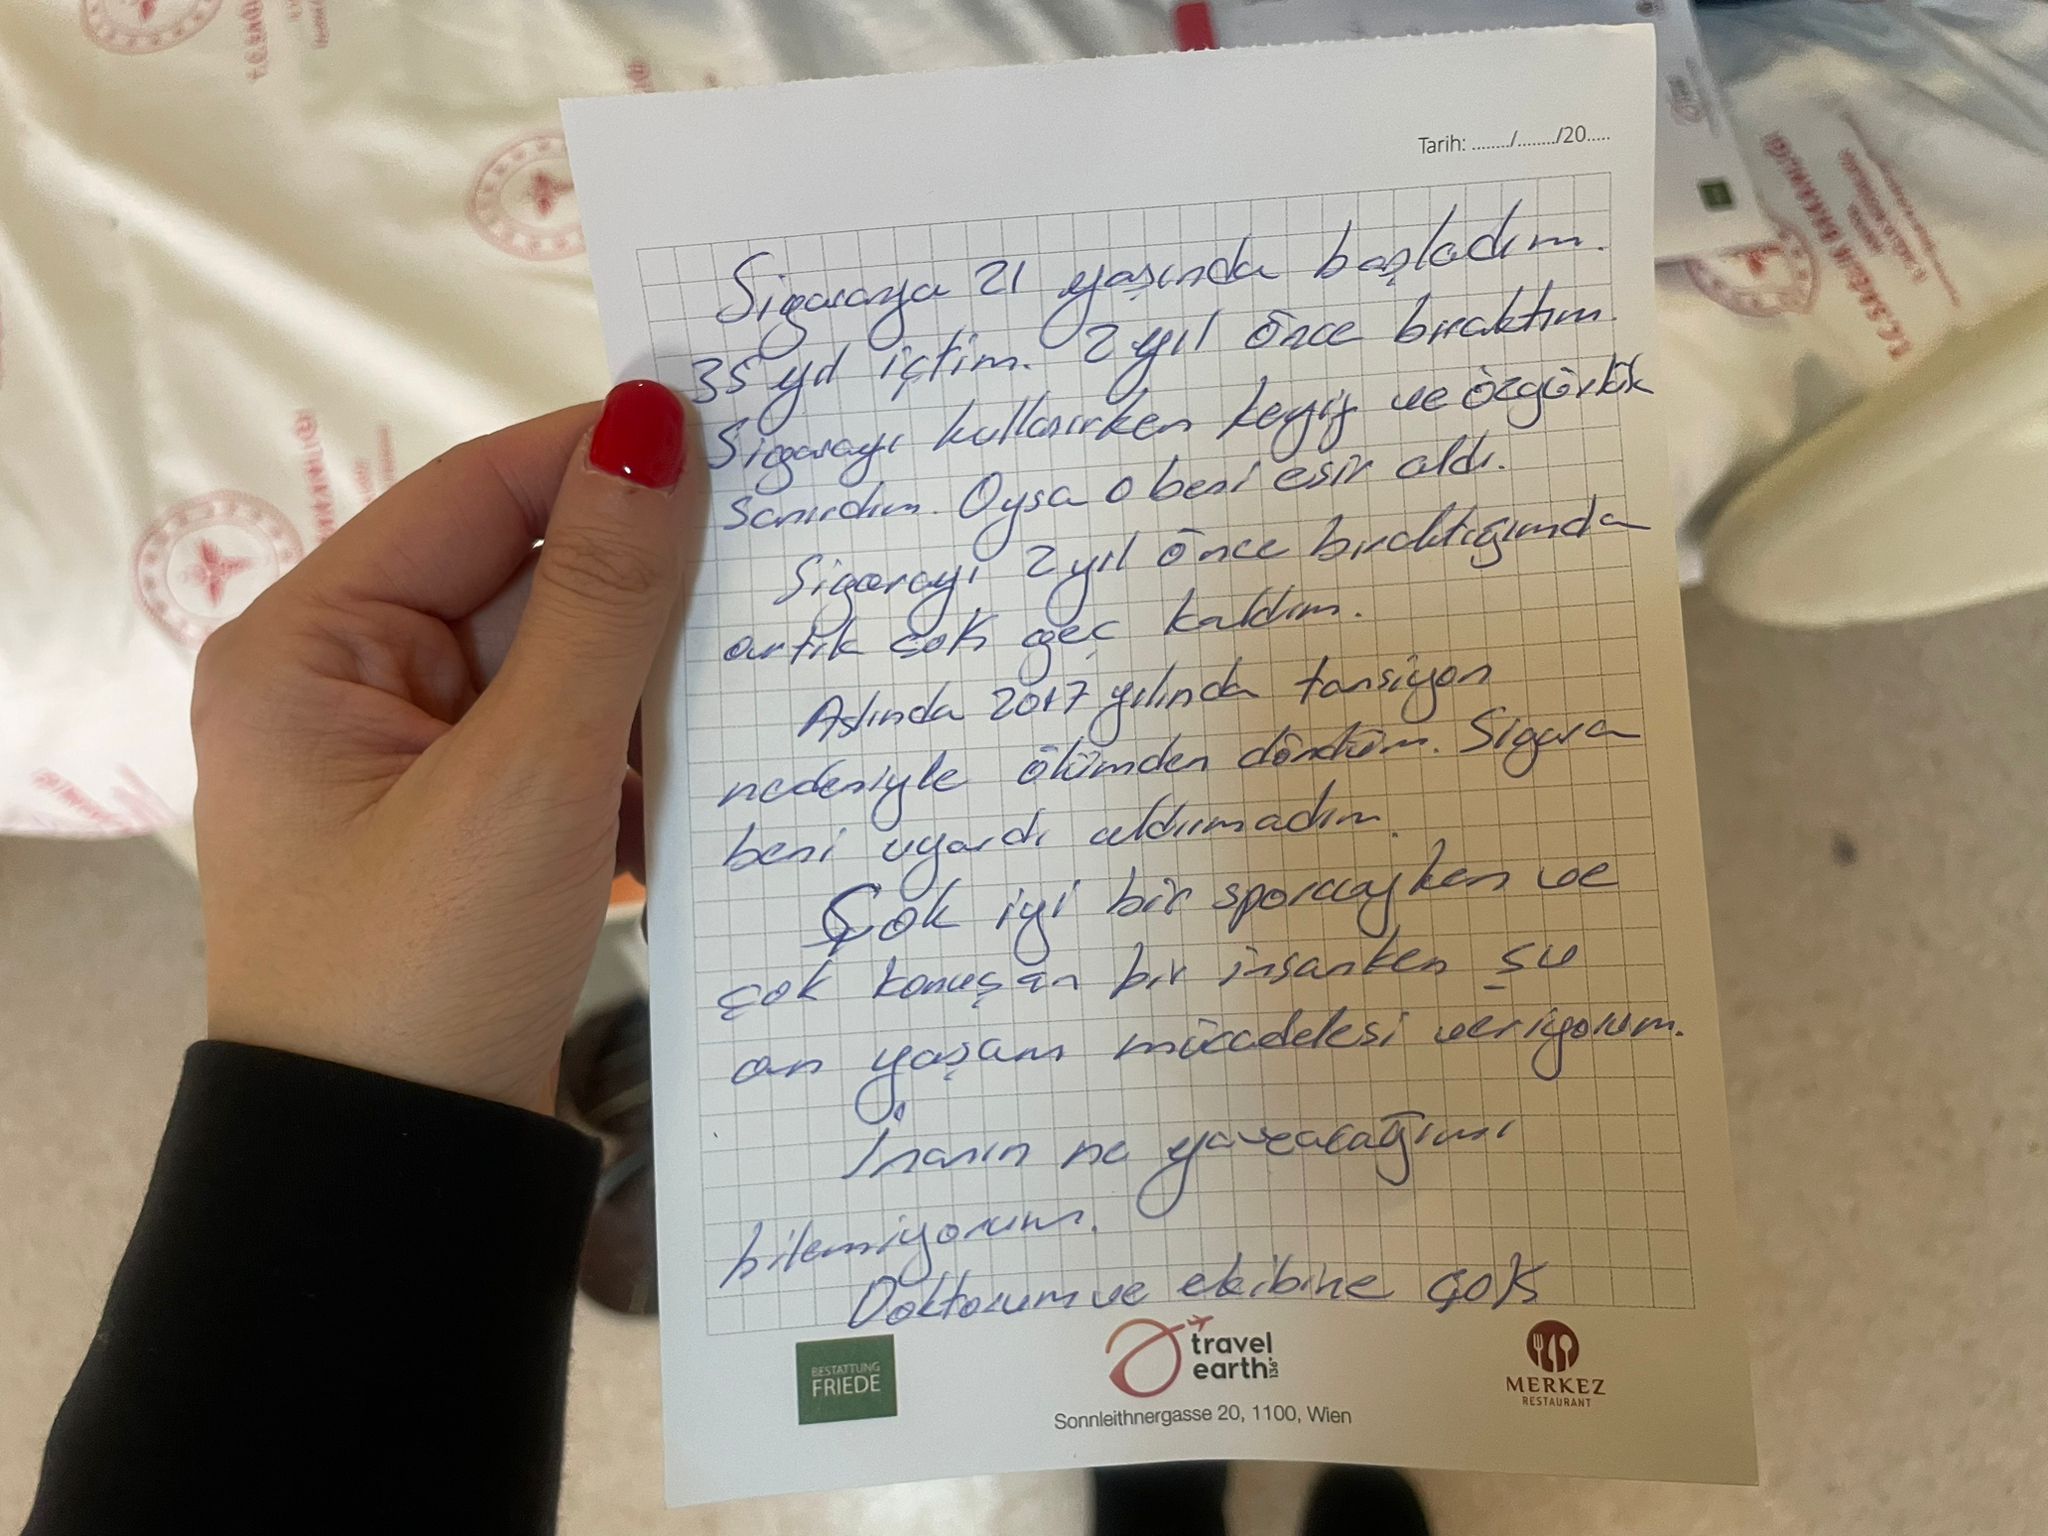 Tarih: ......../......../20.....
Sigaraya 21 yaşında başladım.
35 yıl içtim. 2 yıl önce bıraktım.
Sigarayı kullanırken keyif ve özgürlük
sanırdım. Oysa o beni esir aldı.
Sigarayı 2 yıl önce bıraktığımda
artık çok geç kaldım.
Aslında 2017 yılında tansiyon
nedeniyle ölümden döndüm. Sigara
beni uyardı aldırmadım.
Çok iyi bir sporcuyken ve
çok konuşan bir insanken şu
an yaşam mücadelesi veriyorum.
İnanın ne yapacağımı
bilemiyorum.
Doktorum ve ekibine çok
BESTATTUNG
FRIEDE
travel
earth
Sonnleithnergasse 20, 1100, Wien
MERKEZ
RESTAURANT
T.C. SAĞLIK BAKANLIĞI